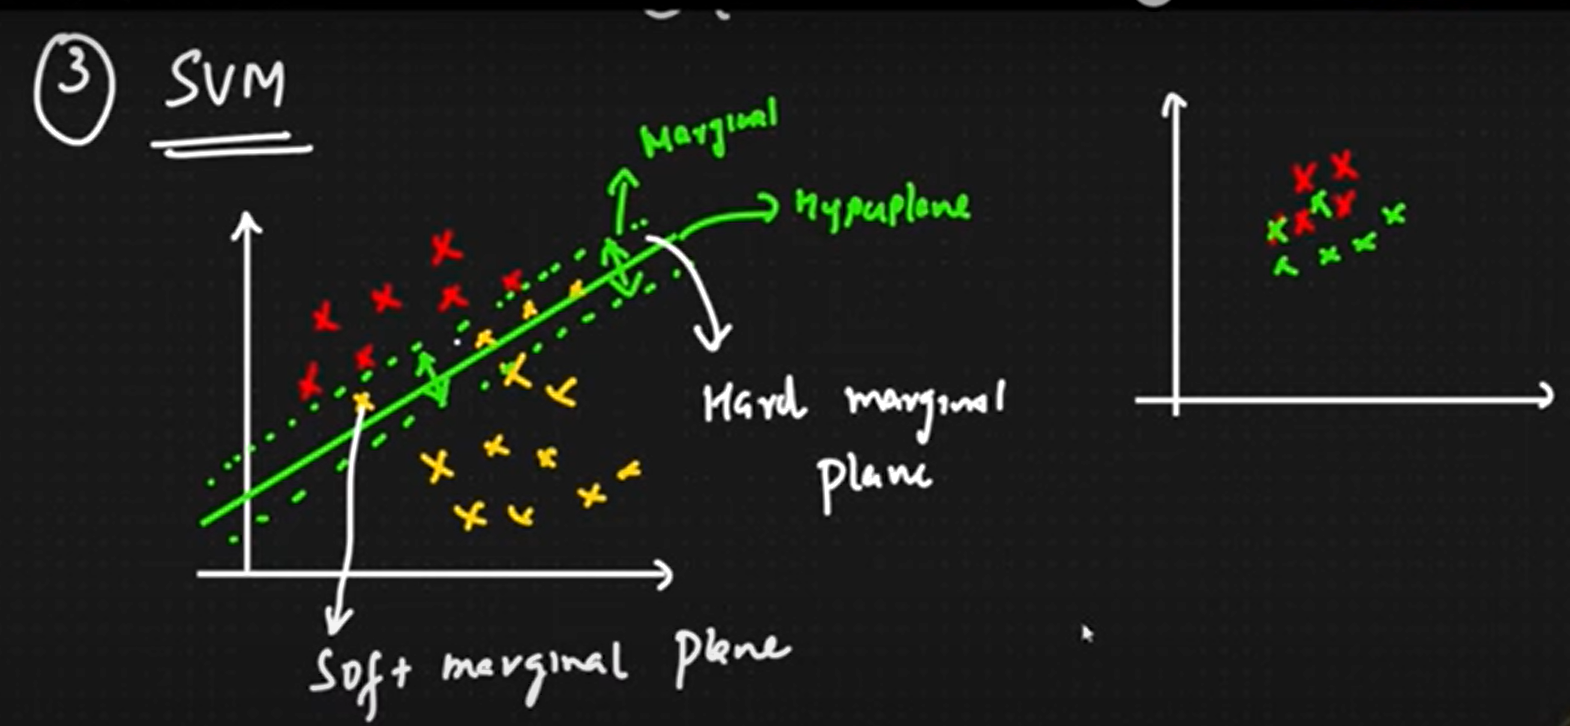 3 SVM
Marginal
Hyperplane
Hard marginal
plane
Soft marginal plane